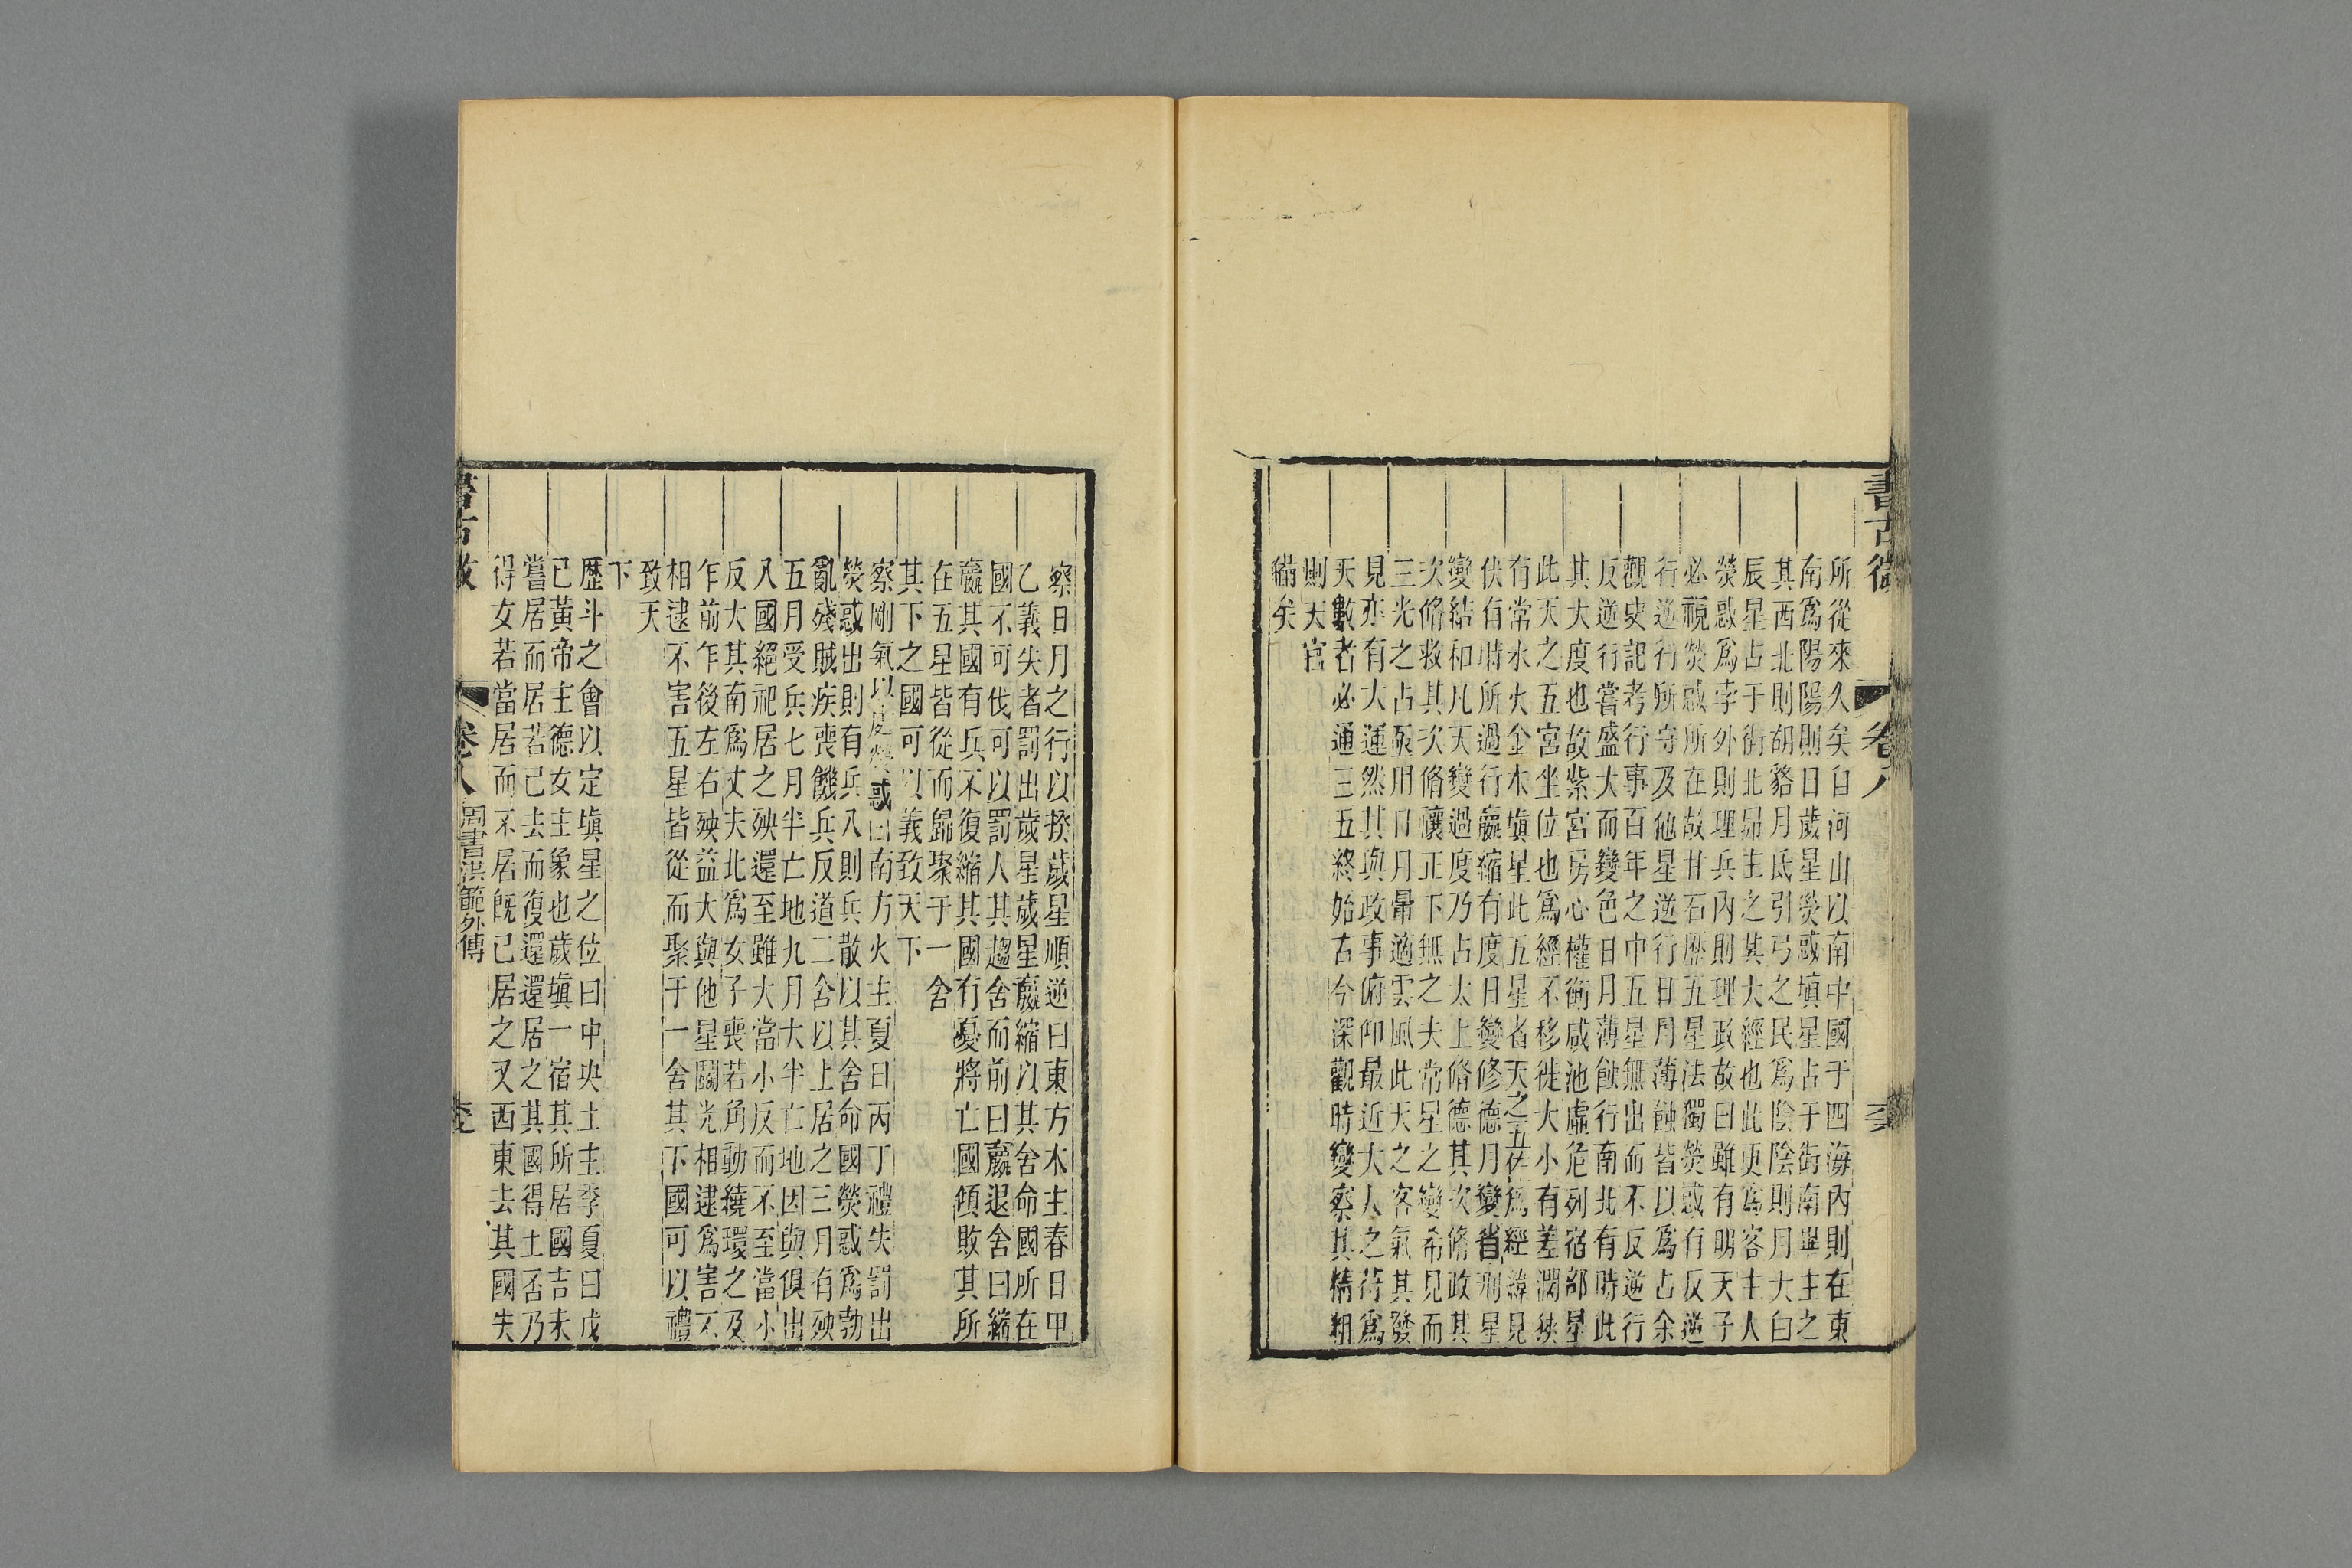 書古微
卷八
所從來久矣自河山以南中國于四海內則在東
南爲陽陽則日歲星熒惑塡星占于街南畢主之
其西北則胡貉月氐引弓之民爲陰陰則月太白
辰星占于街北昴主之其大經也此更爲客主人
熒惑爲孛外則理兵內則理政故曰雖有明天子
必視熒惑所在故甘石歷五星法獨熒惑有反逆
行逆行所守及他星逆行日月薄蝕皆以爲占余
觀史記考行事百年之中五星無出而不反逆行
反逆行嘗盛大而變色日月薄蝕行南北有時此
其大度也故紫宮房心權衡咸池虛危列宿部星
此天之五宮坐位也爲經不移徙大小有差濶狹
有常水火金木塡星此五星者天之五佐爲經緯見
伏有時所過行嬴縮有度日變修德月變省刑星
變結和凡天變過度乃占太上脩德其次脩政其
次脩救其次脩禳正下無之夫常星之變希見而
三光之占亟用日月暈適雲風此天之客氣其發
見亦有大運然其與政事俯仰最近大人之符爲
天數者必通三五終始古今深觀時變察其精粗
則天官
備矣
察日月之行以揆歲星順逆曰東方木主春日甲
乙義失者罰出歲星歲星嬴縮以其舍命國所在
國不可伐可以罰人其趨舍而前曰嬴退舍曰縮
嬴其國有兵不復縮其國有憂將亡國傾敗其所
在五星皆從而歸聚于一舍
其下之國可以義致天下
察剛氣以處熒惑曰南方火主夏日丙丁禮失罰出
熒惑出則有兵入則兵散以其舍命國熒惑爲勃
亂殘賊疾喪饑兵反道二舍以上居之三月有殃
五月受兵七月半亡地九月大半亡地因與俱出
入國絕祀居之殃還至雖大當小反而不至當小
反大其南爲丈夫北爲女子喪若角動繞環之及
乍前乍後左右殃益大與他星鬭光相逮爲害不
相逮不害五星皆從而聚于一舍其下國可以禮
致天
下
歷斗之會以定塡星之位曰中央土主季夏日戊
已黃帝主德女主象也歲塡一宿其所居國吉未
當居而居若已去而復還還居之其國得土否乃
得女若當居而不居旣已居之又西東去其國失
卷八
周書洪範外傳